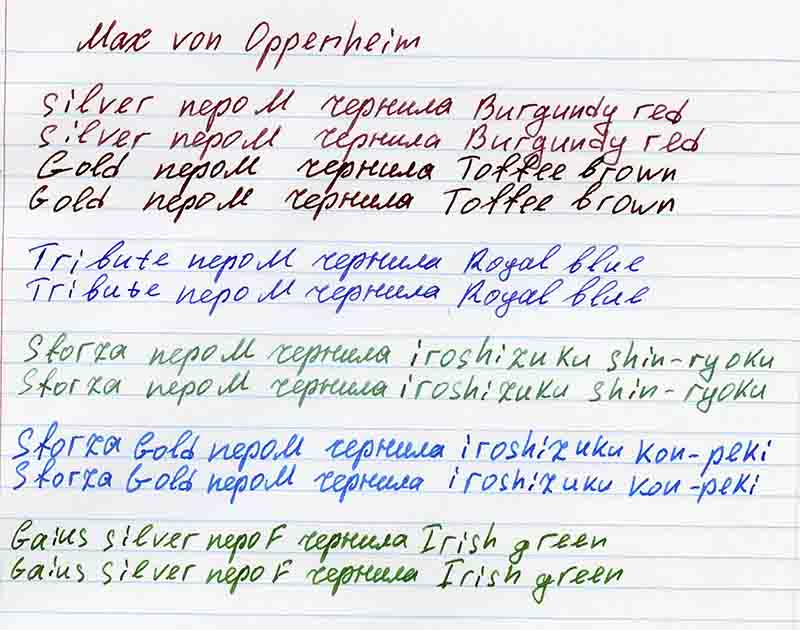 Max von Oppenheim
Silver перо M чернила Burgundy red
Silver перо M чернила Burgundy red
Gold перо M чернила Toffee brown
Gold перо M чернила Toffee brown
Tribute перо M чернила Royal blue
Tribute перо M чернила Royal blue
Sforza перо M чернила iroshizuku shin-ryoku
Sforza перо M чернила iroshizuku shin-ryoku
Sforza Gold перо M чернила iroshizuku kon-peki
Sforza Gold перо M чернила iroshizuku kon-peki
Gaius silver перо F чернила Irish green
Gaius silver перо F чернила Irish green